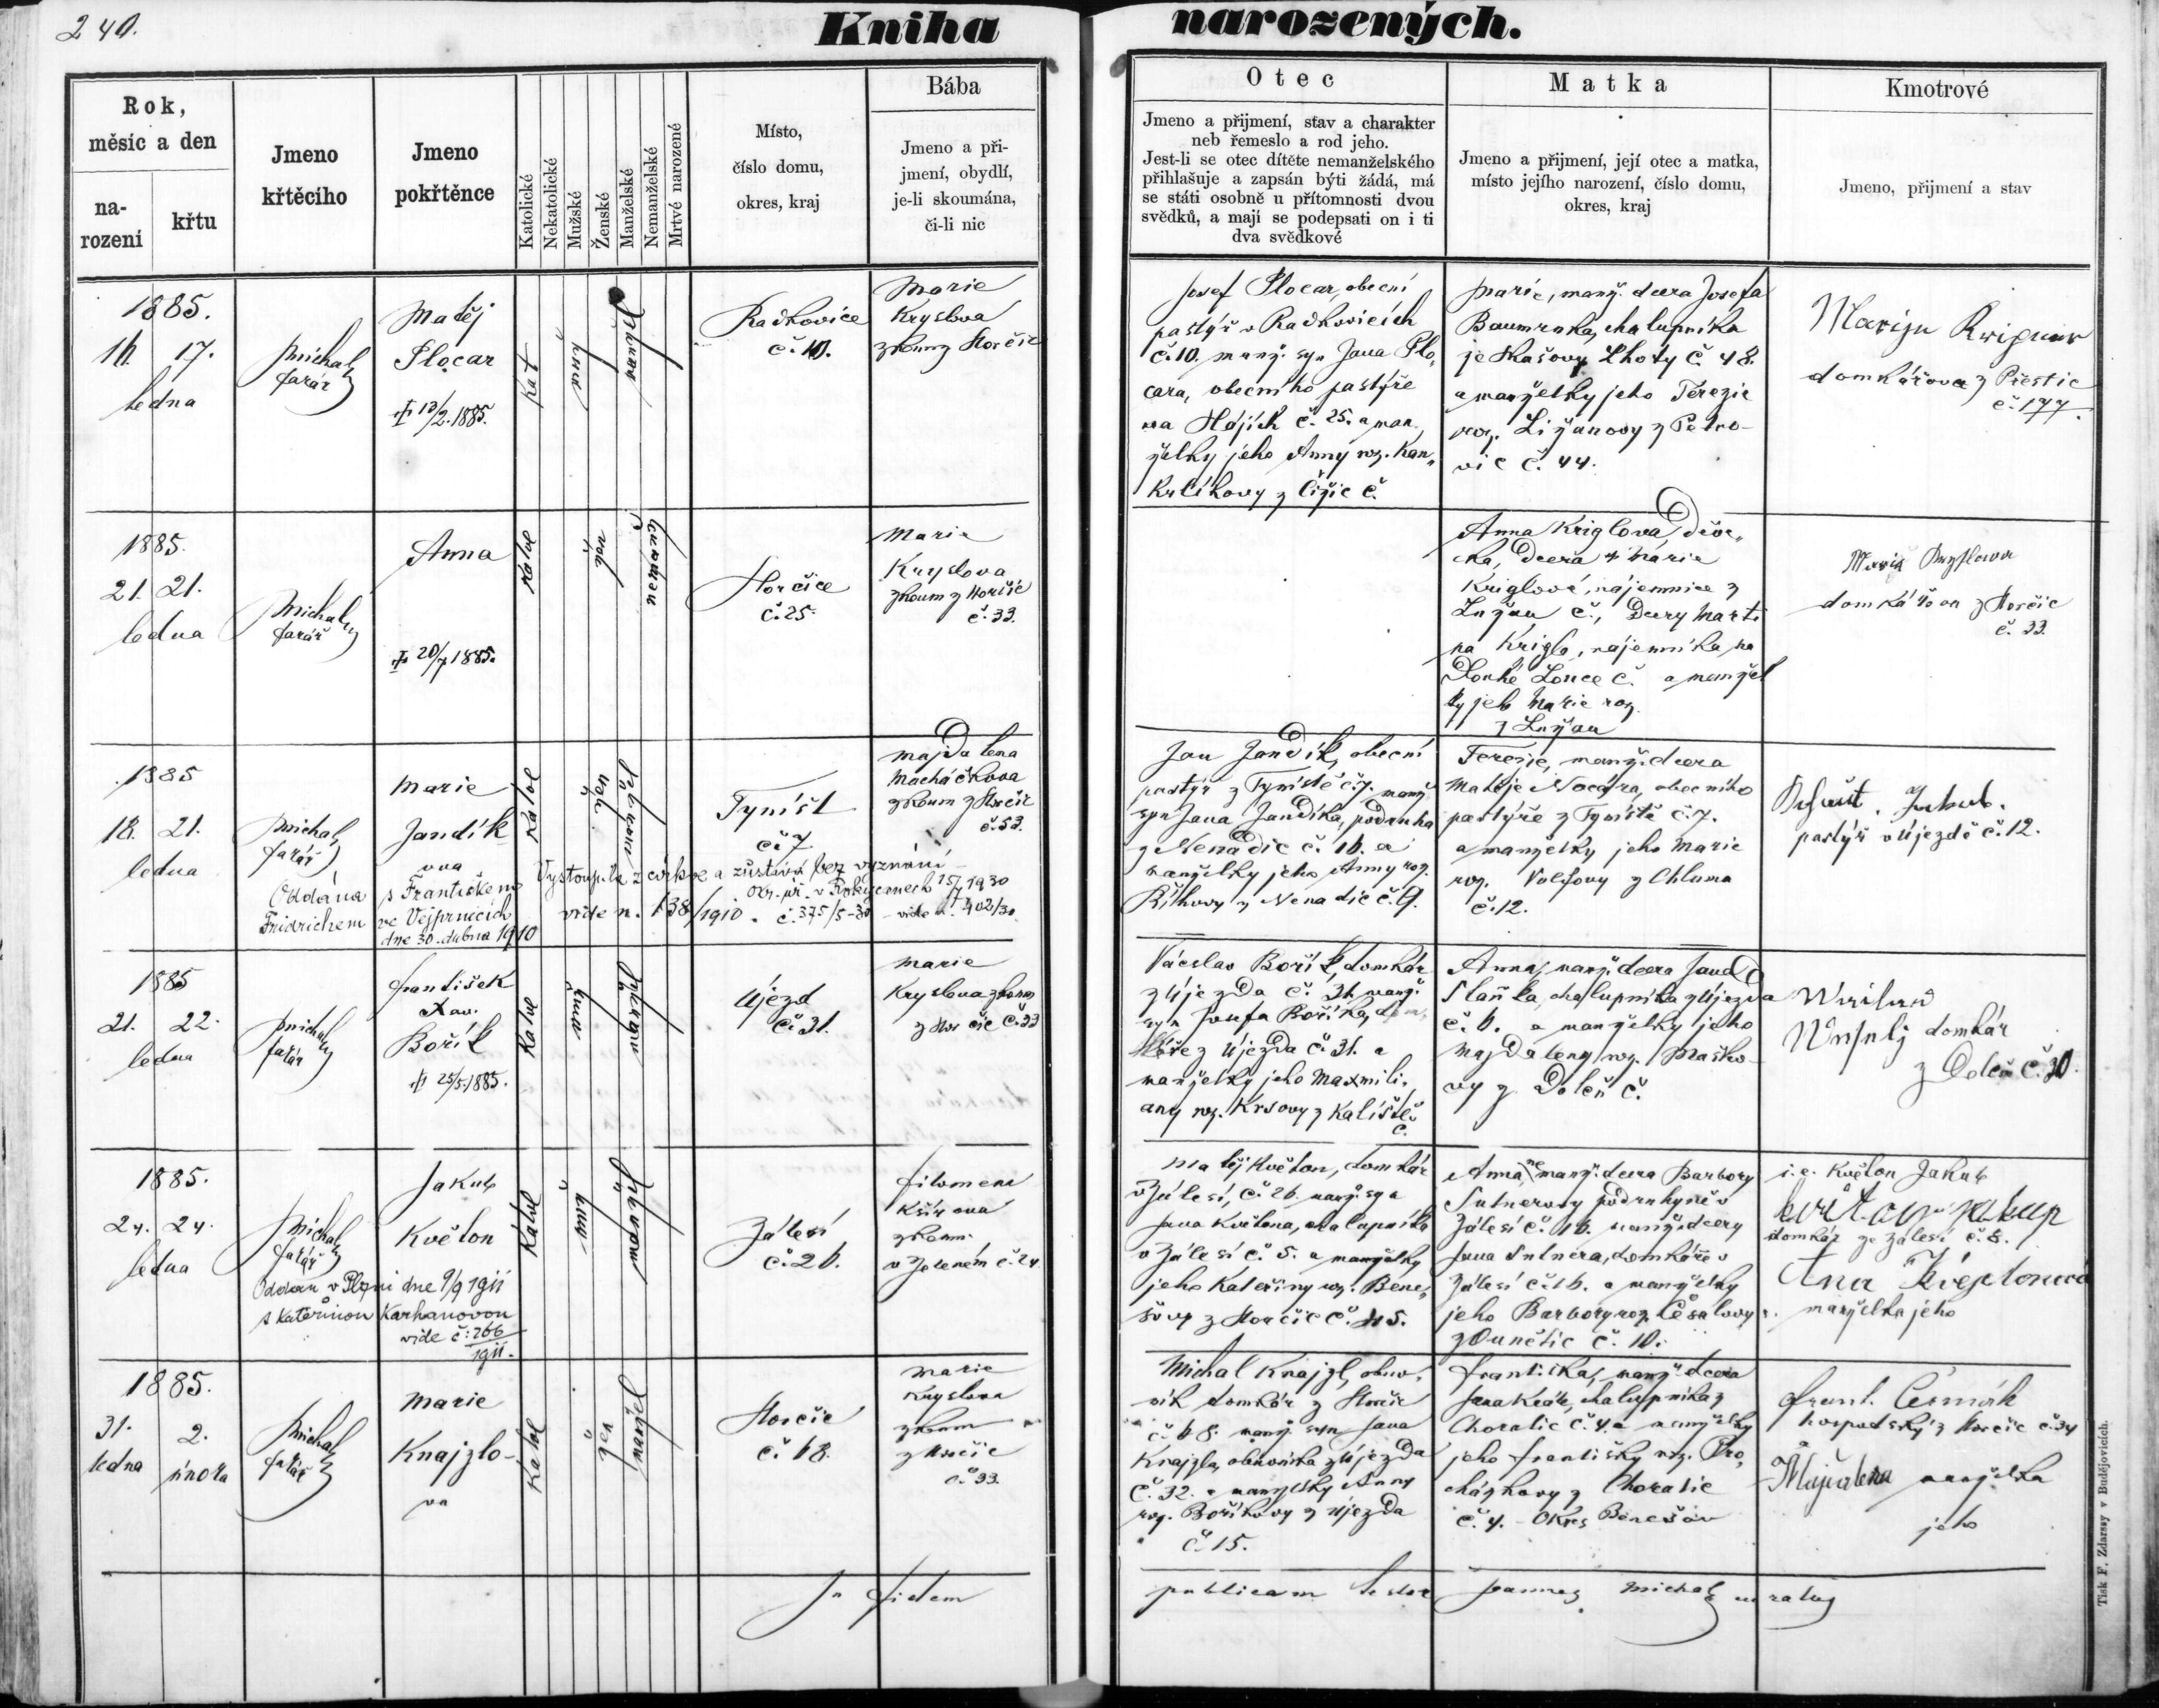 240.
Kniha narozených.
Rok,
měsíc a den
na-
rození
křtu
Jmeno
křtěcího
Jmeno
pokřtěnce
Katolické
Nekatolické
Mužské
Ženské
Manželské
Nemanželské
Mrtvé narozené
Místo,
číslo domu,
okres, kraj
Bába
Jmeno a při-
jmení, obydlí,
je-li skoumána,
či-li nic
Otec
Jmeno a přijmení, stav a charakter
neb řemeslo a rod jeho.
Jest-li se otec dítěte nemanželského
přihlašuje a zapsán býti žádá, má
se státi osobně u přítomnosti dvou
svědků, a mají se podepsati on i ti
dva svědkové
Matka
Jmeno a přijmení, její otec a matka,
místo jejího narození, číslo domu,
okres, kraj
Kmotrové
Jmeno, přijmení a stav
1885.
16. 17.
ledna
Michal
farář
Matěj
Plocar
13/2. 1885.
kat
Radkovice
č. 10.
Marie
Kryslova
zkoum z Horčic
Josef Plocar, obecní
pastýř v Radkovicích
č. 10. manž. syn Jana Plo,
cara, obecního pastýře
na Hájích č. 25. a man
želky jeho Anny roz. Kan„
krlíkovy z Čižic č.
Marie, manž. dcera Josefa
chalupníka
Lhoty č. 48.
a manželky jeho Terezie
roz. Ližanovy z Petro-
vic č. 44.
domkářova z Přestic
č. 177.
1885.
21. 21.
ledna
Michal
farář
Anna
20/7 1885.
katol
Horčice
č. 25.
Marie
Kryslova
zkoum z Horčic
č. 33.
Anna Kriglova děve„
čka, dcera Marie
Kriglové, nájemnice z
Lužan č., dcery Marti
na Krigla, nájemníka na
Dlouhé Louce č. a manžel
ky jeho Marie roz.
z Lužan
domkářova z Horčic
č. 33.
1885
18. 21.
ledna
Michal
farář
Marie
Jandík
ova
katol
Týnišť
č. 7.
Majdalena
Macháčkova
zkoum z Horčic
č. 53.
Oddána s Františkem
Fridrichem ve Vejprnicích
dne 30. dubna 1910
vide n. 138/1910.
Vystoupila z církve a zůstává bez vyznání
Okr. úř. v Rokycanech 15/7 1930
č. 375/5-30 - vide n. 402/30.
Jan Jandík, obecní
pastýř z Týniště č. 7. manž
syn Jana Jandíka, podruha
z Nenadic č. 16. a
manželky jeho Anny roz.
z Nenadic č. 9.
Terezie, manž. dcera
Matěje Nocara, obecního
pastýře z Týniště č. 7.
a manželky jeho Marie
roz. Volfovy z Chluma
č. 12.
Jakub.
pastýř v Újezdě č. 12.
1885
21. 22.
ledna
Michal
farář
František
Xav.
Bořík
25/5. 1885.
katol
Újezd
č. 31.
Marie
Kryslova zkoum
z Horčic č. 33
Václav Bořík, domkář
z Újezda č. 31. manž.
syn Josefa Boříka, dom,
káře z Újezda č. 31. a
manželky jeho Maxmili,
any roz. Krsovy z Kaliště
č.
Anna, manž. dcera Jana
chalupníka z Újezda
č. 6. a manželky jeho
Majdaleny roz. Maško-
vy z Doleň č.
domkář
z Doleň č. 30.
1885.
24. 24.
ledna
Michal
farář
Jakub
Květon
katol
Zálesí
č. 26.
Filomena
zkoum.
v Zeleném č. 24.
Oddán v Plzni dne 9/9 1911
s Kateřinou Karhanovou
vide č: 266
1911.
Matěj Květon, domkář
v Zálesí, č. 26. manž. syn
Jana Květona, chalupníka
v Zálesí č. 5. a manželky
jeho Kateřiny roz. Bene„
šovy z Horčic č. 45.
Anna, ne manž. dcera Barbory
Sutnerovy podruhyně v
Zálesí č. 16. manž. dcery
Jana Sutnera, domkáře v
Zálesí č. 16. a manželky
jeho Barbory roz. Česalovy
z Dunětic č. 10.
i. e. Květon Jakub
květon jakup
domkář ze Zálesí č. 8.
Ana Květonova
manželka jeho
1885.
31. 2.
ledna února
Michal
farář
Marie
Knajzlo-
va
katol
Horčic
č. 68.
Marie
Kryslova
zkoum
z Horčic
č. 33.
Michal Knajzl, obuv„
ník domkář z Horčic
č. 68. manž. syn Jana
Knajzla, obuvníka z Újezda
č. 32. a manželky Anny
roz. Boříkovy z Újezda
č. 15.
Františka, manž. dcera
chalupníka z
Choratic č. 4. a manželky
jeho Františky roz. Pro„
cházkovy z Choratic
č. 4. - Okres Benešov
Frant. Čermák
hospodský z Horčic č. 34
Majdalena manželka
jeho
In fidem publicam testor Joannes Michal curatus
Tisk F. Zdarssy v Budějovicích.